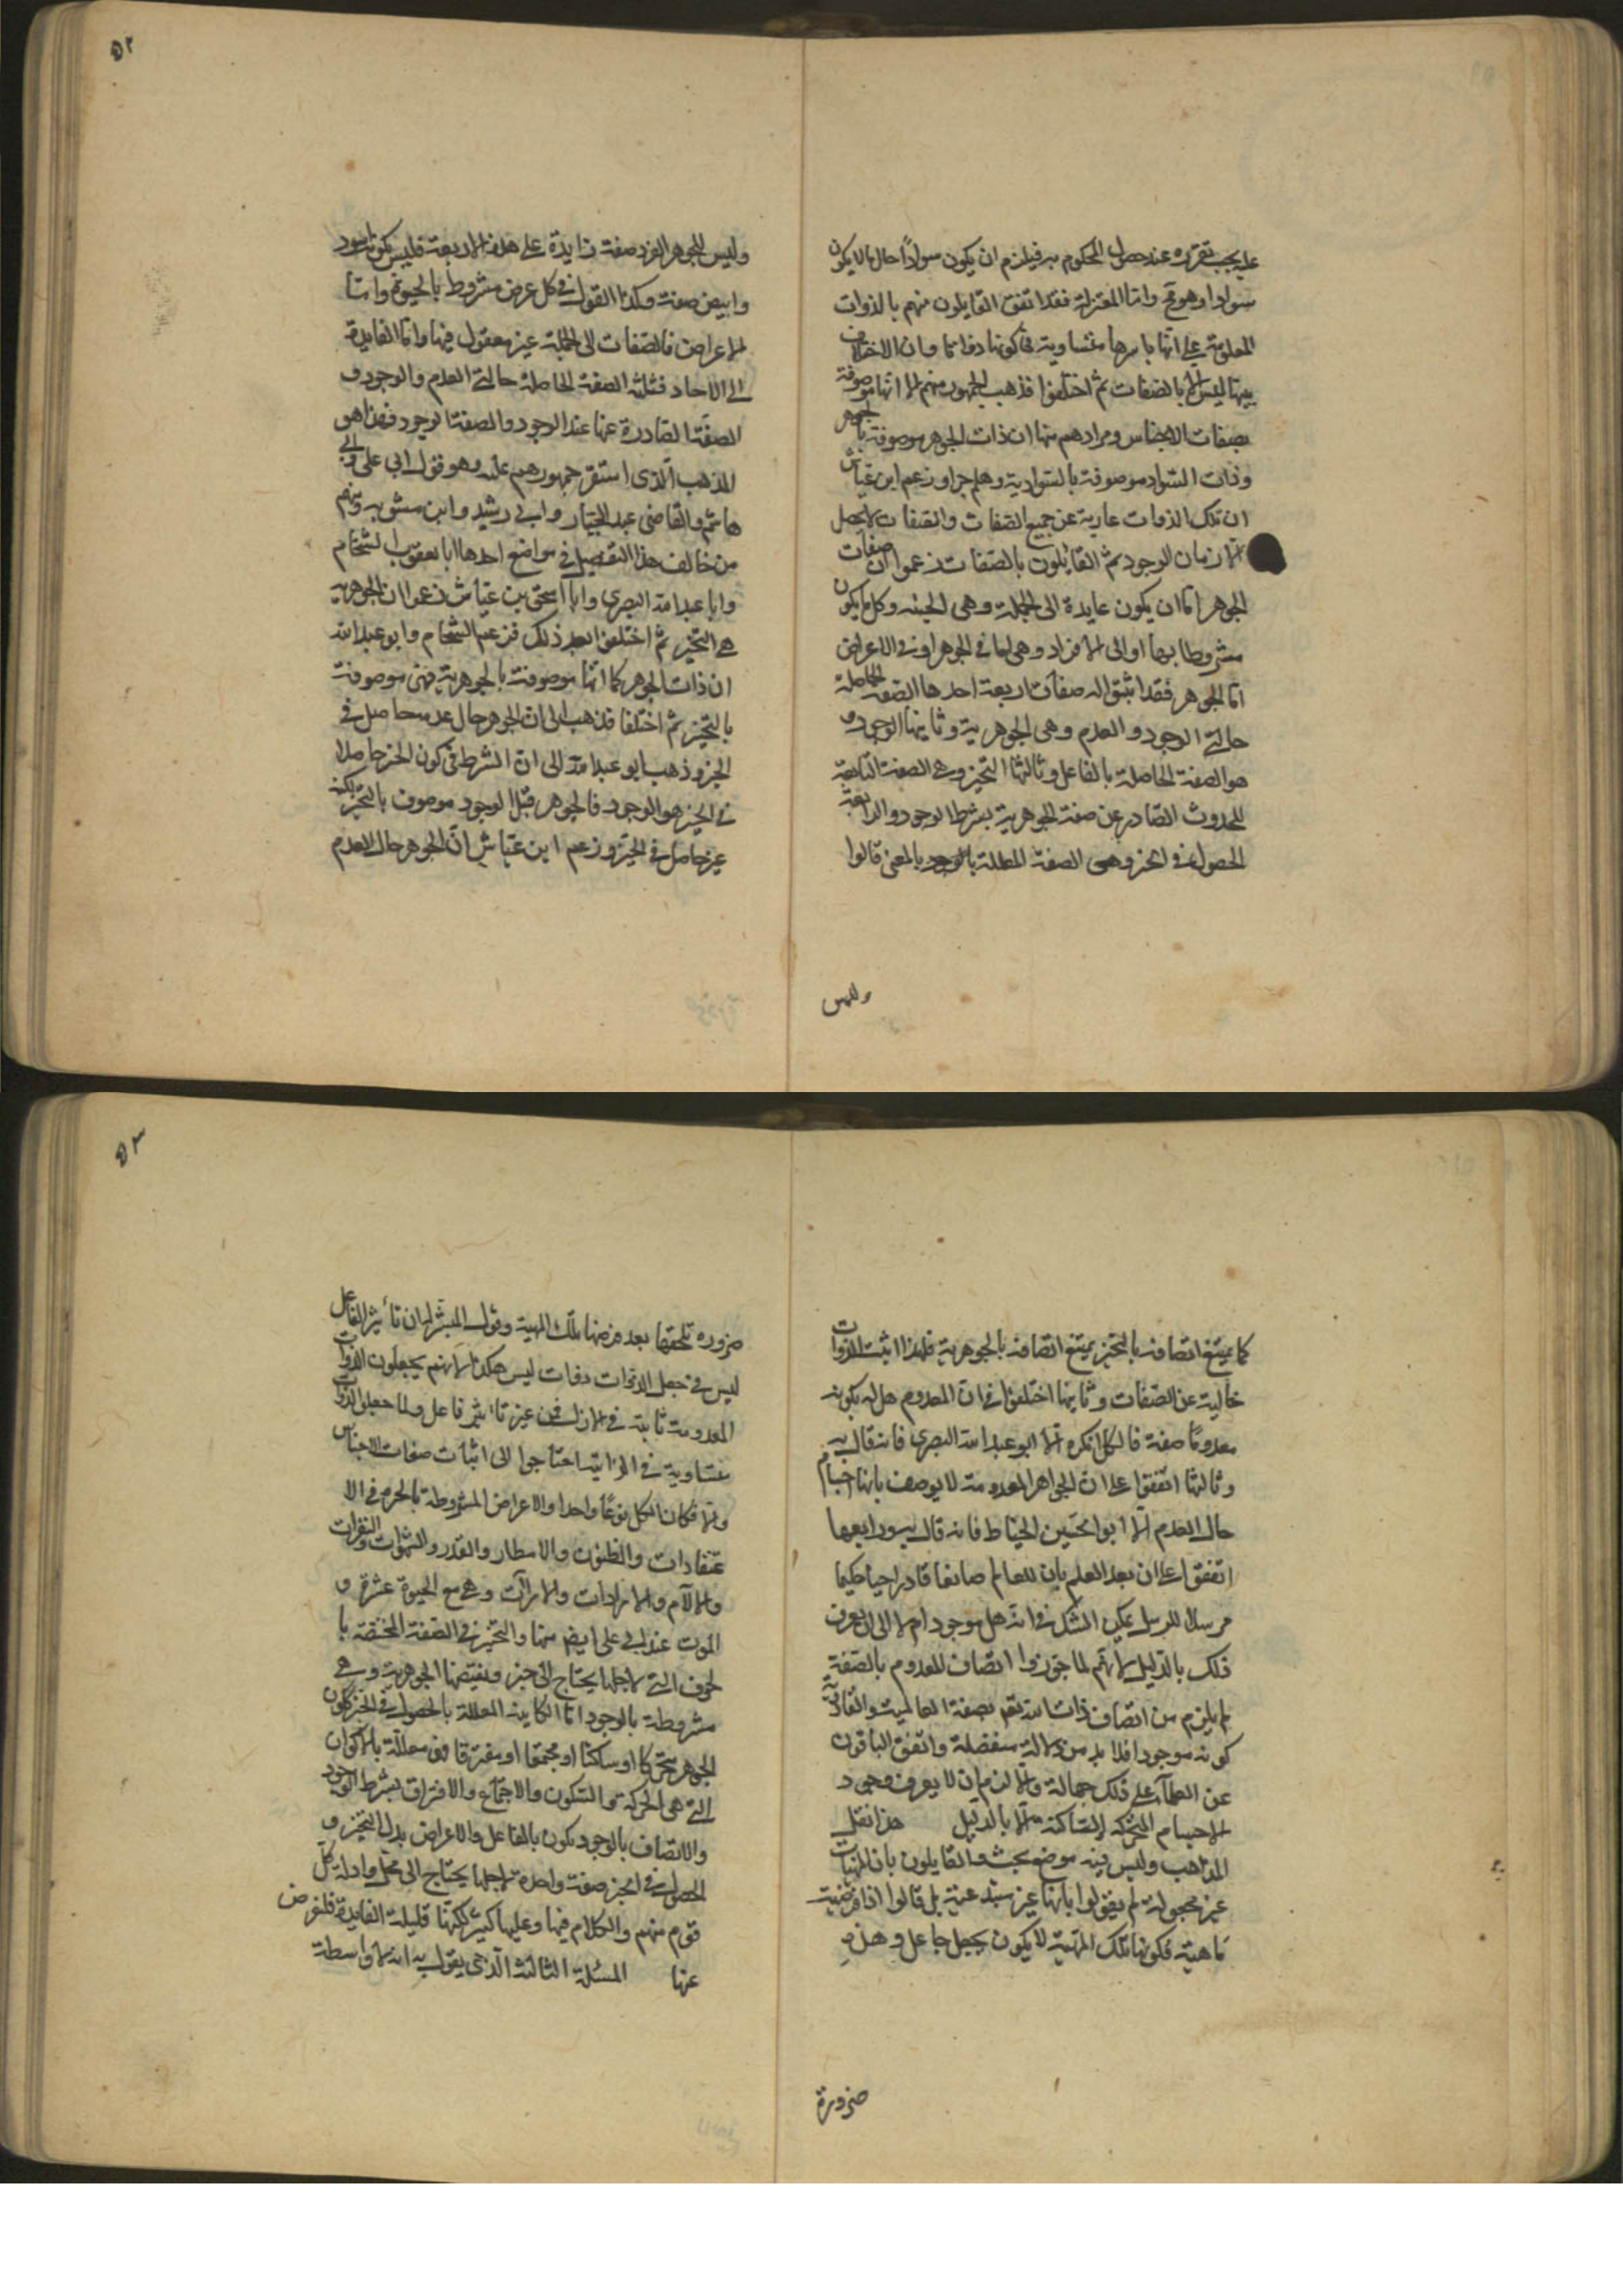 عليه يجب تقرره عند حصول المحكوم به فيلزم ان يكون سوادًا حال ما لا يكون
سوادا وهو مح واما المعتزلة فقد اتفق القايلون منهم بالذوات
المعلومة على انها باسرها متساوية في كونها ذواتا وان الاختلاف
بينها ليس الا بالصفات ثم اختلفوا فذهب الجمهور منهم الا انها موصوفة
بصفات الاجناس ومرادهم منها ان ذات الجوهر موصوفة بالجوهر
وذات السواد موصوفة بالسوادية وهلم جرا وزعم ابن عياش
ان تلك الذوات عارية عن جميع الصفات والصفات لا يحصل
الا زمان الوجود ثم القايلون بالصفات زعموا ان صفات
الجوهر اما ان يكون عايدة الى الجملة وهى الحيية وكل ما يكون
مشروطا بها او الى الافراد وهى اما في الجوهر او في الاعراض
اما الجوهر فقد اثبتوا له صفات اربعة احدها الصفة الحاصلة
حالتى الوجود والعدم وهى الجوهرية وثانيها الوجود و
هو الصفة الحاصلة بالفاعل وثالثها التحيز وهى الصفة التابعة
للحدوث الصادر عن صفة الجوهرية بشرط الوجود والرابعة
الحصول في الحيز وهى الصفة المعللة بالمعنى قالوا
وليس
٥٢
وليس للجوهر الفرد صفة زايدة على هذه الاربعة فليس بكونه اسود
وابيض صفة وكذا القول في كل عرض مشروط بالحيوة واما
الاعراض فالصفات الى الجملة غير معقول فيها واما العايدة
الى الاحاد فثلثة الصفة الحاصلة حالتى العدم والوجود و
الصفة الصادرة عنها عند الوجود والصفة الوجود فهذا هو
المذهب الذى استقر جمهورهم عليه وهو قول ابى على وابى
هاشم والقاضى عبد الجبار وابى رشيد وابن متويه ومنهم
من خالف هذا التفصيل في مواضع احدها ابا يعقوب الشحام
وابا عبد الله البصرى وابا اسحق بن عياش زعموا ان الجوهرية
هى التحيز ثم اختلفوا بعد ذلك فزعم الشحام وابو عبد الله
ان ذات الجوهر كما انها موصوفة بالجوهرية فهى موصوفة
بالتحيز ثم اختلفا فذهب الى ان الجوهر حال عدمه حاصل في
الحيز وذهب ابو عبد الله الى ان الشرط في كون الحيز حاصلا
في الحيز هو الوجود فالجوهر قبل الوجود موصوف بالتحيز لكنه
غير حاصل في الحيز وزعم ابن عياش ان الجوهر حال العدم
كما يمتنع اتصافه بالتحيز يمتنع اتصافه بالجوهرية فلهذا اثبت الذوات
خالية عن الصفات وثانيها اختلفوا في ان المعدوم هل له بكونه
معدومًا صفة فالكل انكره الا ابو عبد الله البصرى فانه قال به
وثالثها اتفقوا على ان الجواهر المعدومة لا يوصف بانها اجسام
حال العدم الا ابو الحسين الخياط فانه قال به ورابعها
اتفقوا على ان بعد العلم بان للعالم صانعا قادرا حيا حكيما
مرسلا للرسل يمكن الشك في انه هل موجود ام لا الى ان يعرف
ذلك بالدليل لانهم لما جوزوا اتصاف المعدوم بالصفة
لم يلزم من اتصاف ذات الله تعم بصفة العالمية والقادرية
كونه موجودا فلا بد من دلالة منفصلة واتفق الباقون
عن العقلاء على ذلك جهالة والا لزم ان لا يعرف وجود
الاجسام المتحركة الساكنة الا بالدليل هذا نقل
المذاهب وليس فيه موضع بحث والقايلون بان المهيات
غير مجعولة لم يقولوا بانها غير مبتدعة بل قالوا اذا فرضية
ماهية فكونها تلك المهية لا يكون بجعل جاعل وهذه
ضرورة
٥٣
ضرورة تلحقها بعد فرضها تلك المهية وقول المعتزلة ان تأثير الفاعل
ليس في جعل الذوات ذوات ليس هكذا لانهم يجعلون الذوات
المعدومة ثابتة في الازل من غير تأثير فاعل ولما جعلوا الذوات
متساوية في الذاتية احتاجوا الى اثبات صفات الاجناس
والا فكان الكل نوعًا واحدا والاعراض المشروطة بالحيوة هى الا
عتقادات والظنون والانظار والقدر والشهوات والنفرات
والآلام والارادات والكراهات وهى مع الحيوة عشرة و
الموت عند ابى على ايضا منها والتحيز هى الصفة المختصة با
لجوهر التى لاجلها يحتاج الى حيز ومقتضيها الجوهرية وهى
مشروطة بالوجود اما الكاينة المعللة بالحصول في الحيز ككون
الجوهر متحركا او ساكنا او مجتمعا او مفترقا فهى معللة بالاكوان
التى هى الحركة والسكون والاجتماع والافتراق بشرط الوجود
والاتصاف بالوجود يكون بالفاعل والاعراض بدل التحيز و
الحصول في الحيز صفة واحدة لاجلها يحتاج الى محل وادلة كل
قوم منهم والكلام فيها وعليها كثير لكنها قليلة الفايدة فلنعرض
عنها المسئلة الثالثة الذى يقول به انه لا واسطة